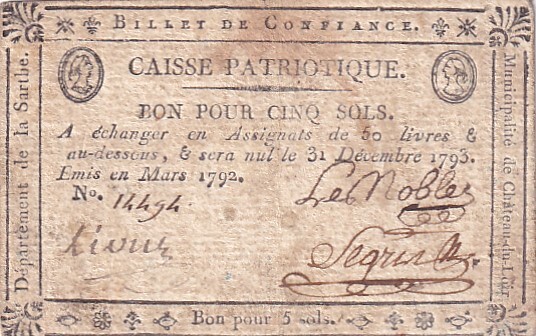 Billet de Confiance.
CAISSE PATRIOTIQUE.
BON POUR CINQ SOLS.
A échanger en Assignats de 50 livres &
au-dessous, & sera nul le 31 Décembre 1793.
Emis en Mars 1792.
No. 14494
Les Nobles
Bon pour 5 sols.
Département de la Sarthe.
Municipalité de Château-du-Loir